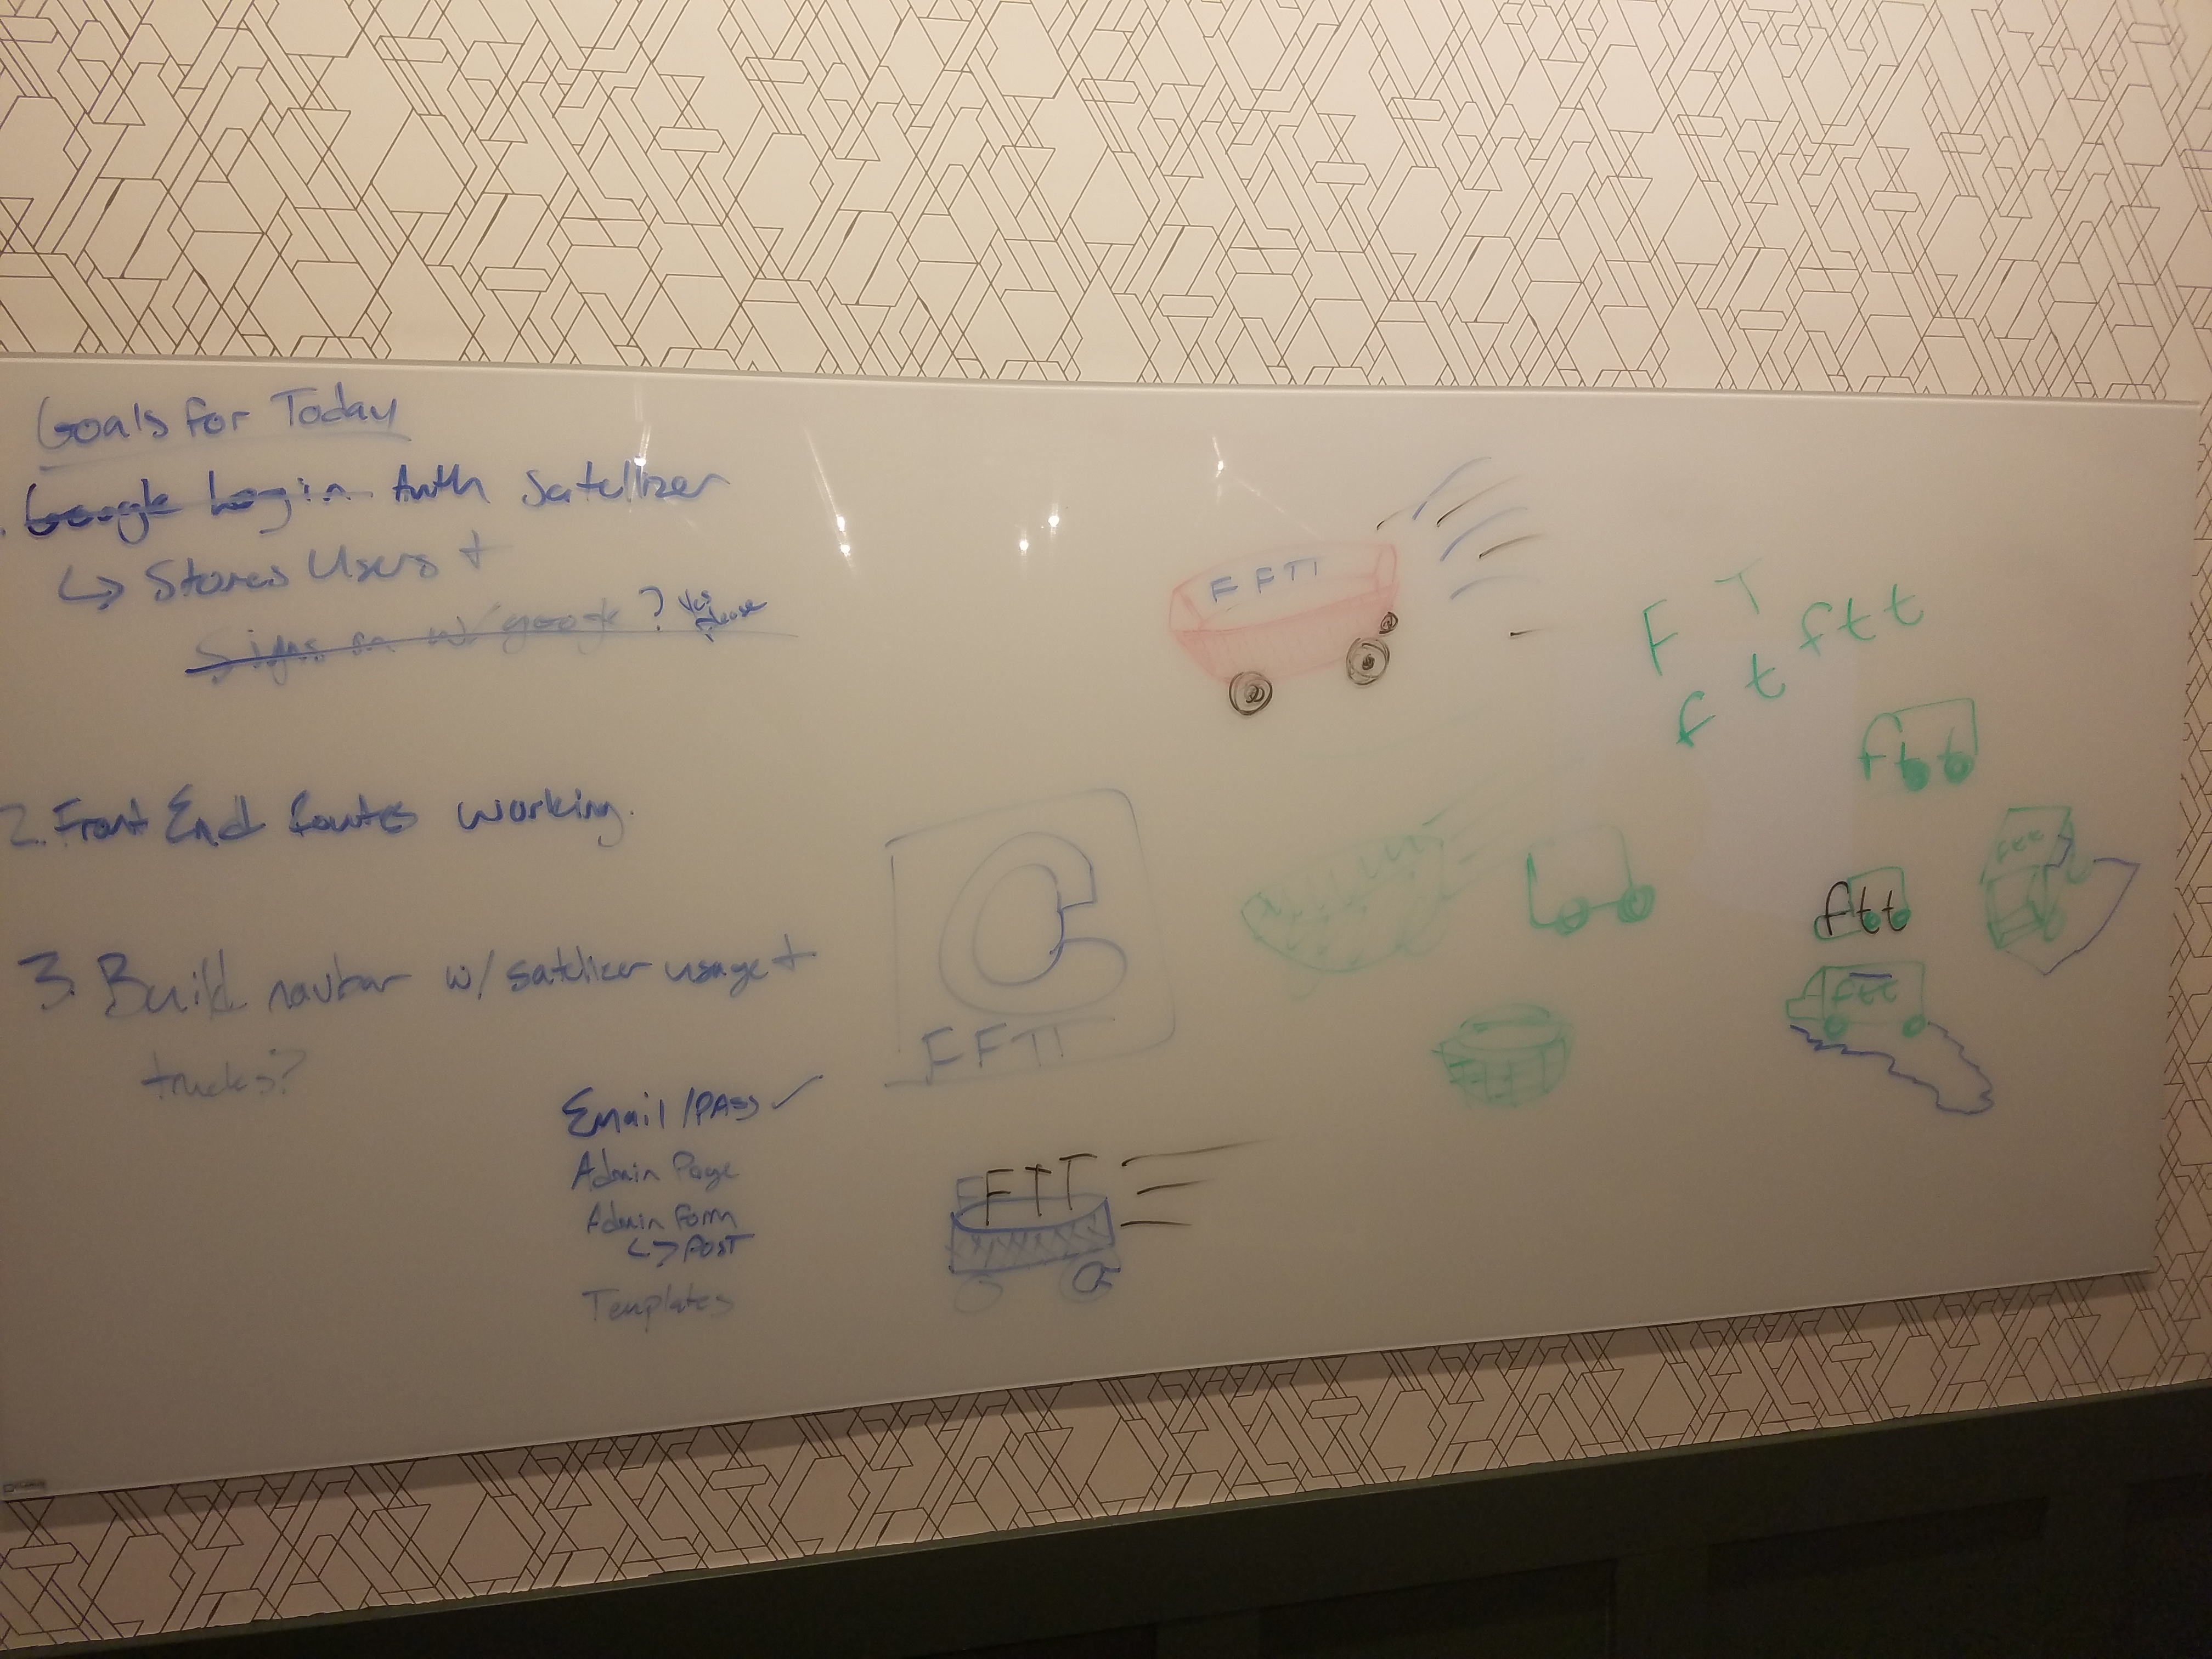 Goals for Today
Google Login Auth Satellizer
↳ Stores Users +
Signs on w/ google? Yes please
2. Front End Routes working.
3. Build navbar w/ satelizer usage +
trucks?
Email/PASS ✓
Admin Page
Admin Form
↳ POST
Templates
FFTT
FFTT
FFTT
F T
f t
ftt
ftt
ftt
ftt
ftt